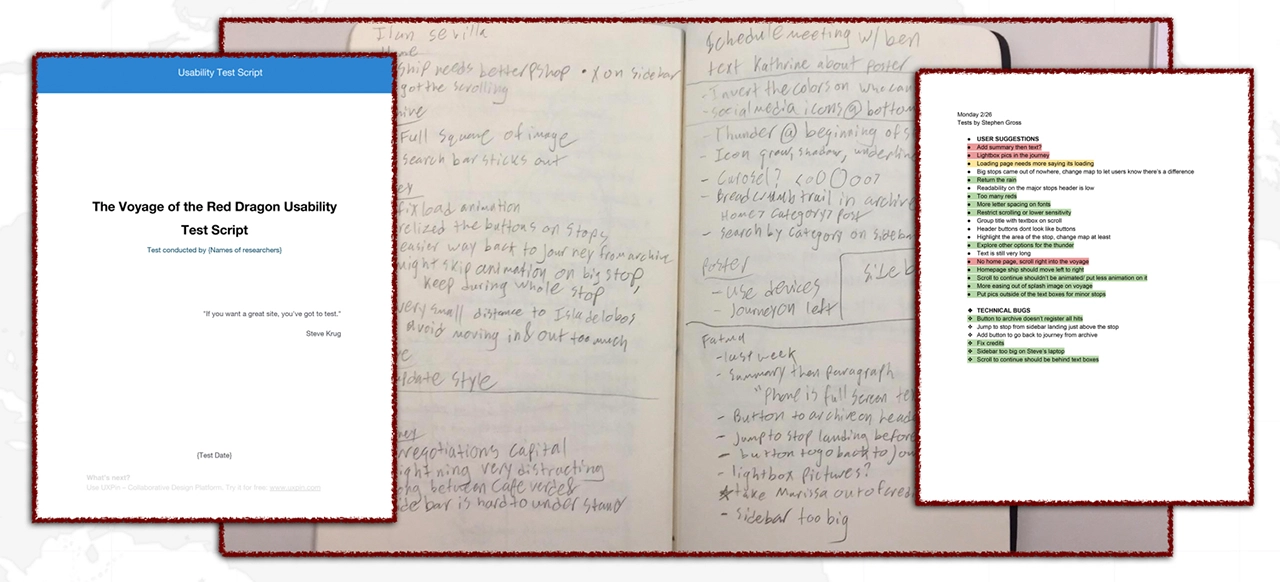 Usability Test Script
The Voyage of the Red Dragon Usability
Test Script
Test conducted by {Names of researchers}
"If you want a great site, you've got to test."
Steve Krug
{Test Date}
What's next?
Use UXPin – Collaborative Design Platform. Try it for free: www.uxpin.com
Ilan Sevilla
Home
ship needs better pshop • X on sidebar
got the scrolling
hive
Full Square of image
search bar sticks out
ey
fix load animation
relized the buttons on stops
easier way back to journey from archive
might skip animation on big stop,
keep during whole stop
very small distance to Isla de lobos
avoid moving in & out too much
update style
negotiations capital
lightning very distracting
ong between Cape verde &
side bar is hard to understand
Schedule meeting w/ ben
text Kathrine about poster
- Invert the colors on who can
- social media icons @ bottom
- Thunder @ beginning of s
- Icon grow, shadow, underline
- Carosel?
- Breadcrumb trail in archive
Home > Category > Post
- search by category on sideba
Poster
- use devices
- Journey on left
Side b
Fatma
- last week
- Summary then paragraph
"Phone is full screen te
- Button to archive on head
- jump to stop landing before
- button to go back to jou
- lightbox pictures?
★ take Marissa out of cred
- sidebar too big
Monday 2/26
Tests by Stephen Gross
● USER SUGGESTIONS
● Add summary then text?
● Lightbox pics in the journey
● Loading page needs more saying its loading
● Big stops came out of nowhere, change map to let users know there's a difference
● Return the rain
● Readability on the major stops header is low
● Too many reds
● More letter spacing on fonts
● Restrict scrolling or lower sensitivity
● Group title with textbox on scroll
● Header buttons dont look like buttons
● Highlight the area of the stop, change map at least
● Explore other options for the thunder
● Text is still very long
● No home page, scroll right into the voyage
● Homepage ship should move left to right
● Scroll to continue shouldn't be animated/ put less animation on it
● More easing out of splash image on voyage
● Put pics outside of the text boxes for minor stops
❖ TECHNICAL BUGS
❖ Button to archive doesn't register all hits
❖ Jump to stop from sidebar landing just above the stop
❖ Add button to go back to journey from archive
❖ Fix credits
❖ Sidebar too big on Steve's laptop
❖ Scroll to continue should be behind text boxes